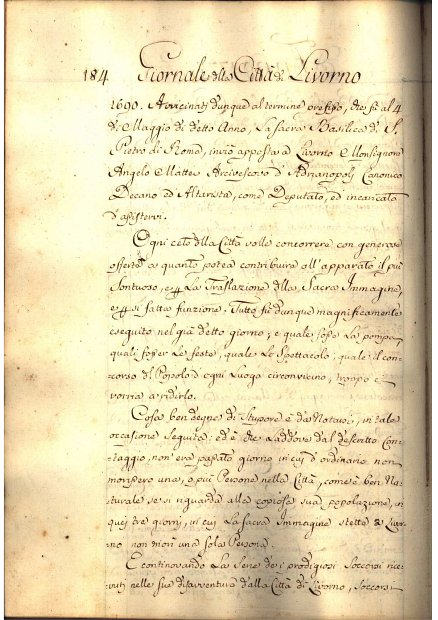 184 Giornale della Città di Livorno
1690. Avvicinatj dunque al termine prefisso, che fù al 4
di Maggio di detto Anno, La Sacra Basilica di S.
Pietro di Roma, inviò apposta a Livorno Monsignore
Angelo Matteo Arcivescovo d'Adrianopoli Canonico
Decano ed Altarista, come Deputato, ed incaricato
d'assistervi.
Ogni ceto della Città volle concorrere con generose
offerte a quanto potea contribuire all'apparato il più
Sontuoso, e per La Traslazione della Sacra Immagine,
e per sì fatta funzione. Tutto fù dunque magnificamente
eseguito nel già detto giorno; e quale fosse La pompa,
quali fosser Le feste, quale Lo Spettacolo, quale il con=
corso del Popolo d'ogni Luogo circonvicino, troppo ci
vorria a ridirlo.
Cosa ben degna di Stupore è da Notarsi, in tale
occasione Seguita; ed è che Laddove dal descritto Con=
taggio, non era passato giorno in cui d'ordinario non
morissero una, o più Persone nella Città, com'è ben Na=
turale se si riguarda alla copiosa sua popolazione, in
quei tre giorni, in cui La Sacra Immagine stette a Livor=
no non morì una sola Persona.
E continovando La Serie de i prodigiosi Soccorsi rice=
vuti nelle sue disavventure dalla Città di Livorno, soccorsi